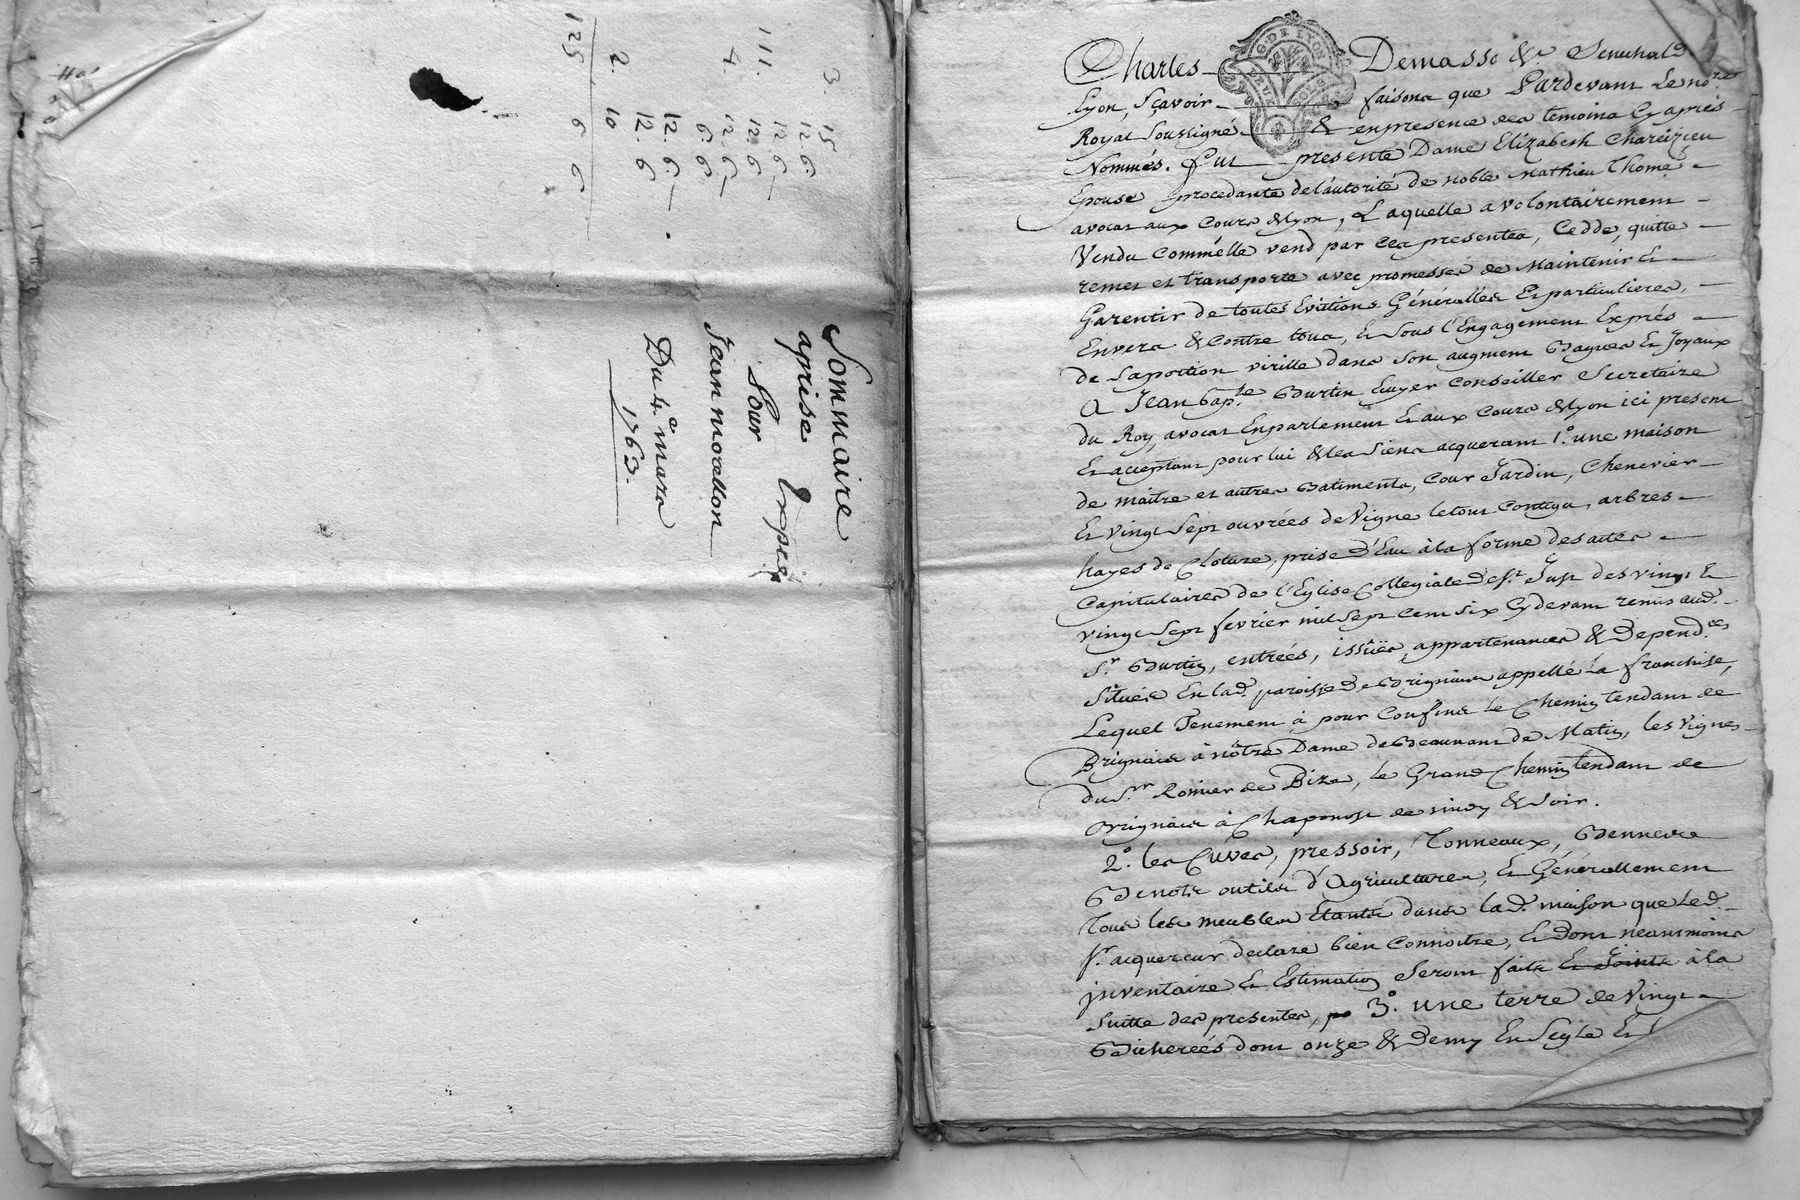 3. 15
12. 6.
111. 12. 6 —
12. 6
4. 12. 6 —
6. 6
12. 6. —
12. 6
2. 10
125 6 6
Sommaire
aprise Expéd
Pour
Jean morellon
Du 4.e mars
1763.
G. DE LYON
DEUX SOLS
Charles Demasso &a Senechal de
Lyon, Sçavoir faisons que Pardevant Le no.re
Royal Soussigné & en presence des temoins Cy après
Nommés. fut presente Dame Elizabeth Chareizieu
Epouse procedante de l'autorité de noble Mathieu Thomé
avocat aux Cours de Lyon, Laquelle a volontairement
Vendu Comm'elle vend par ces presentes, Cedde, quitte
remet et transporte avec promesses de Maintenir Et
Garentir de toutes Evictions Généralles Et particulieres,
Envers & Contre tous, Et Sous l'Engagement Exprés
de Saportion virille dans Son augment Bagues Et Joyaux
A Jean bap.te Burtin Ecuyer Conseiller Secretaire
du Roy, avocat En parlement Et aux Cours de Lyon ici present
Et acceptant pour lui & les Siens acquerant 1.o une maison
de maitre et autres Batiments, Cour Jardin, Chenevier
Et vingt Sept ouvrées de Vigne le tout Contigu, arbres
hayes de Cloture, prise d'Eau à la forme des actes
Capitulaires de l'Eglise Collegiale de St. Just des vingt &
vingt Sept fevrier mil Sept Cent Six Cy devant remis aud.
Sr. Burtin, entrées, issües, appartenances & Depend.ces
Situés En lad. paroisse de Brignais appellé La franchise,
Lequel Tenement à pour Confins Le Chemin tendant de
Brignais à nôtre Dame de Beaunant de Matin, les vignes
du S.r Romier de Bize, Le Grand Chemin tendant de
Brignais à Chaponost de vent & Soir.
2.o les Cuves, pressoir, Tonneaux, Bennes
Benots outils d'Agriculture, Et Générallement
Tous les meubles Etants dans lad. maison que Led.
Sr. acquereur declare bien Connoitre, Et dont neantmoins
inventaire Et Estimation Seront faits Et Joints à la
Suitte des presentes, 3.o une terre de Vingt
Bicherées dont onze & demy En Seigle Et